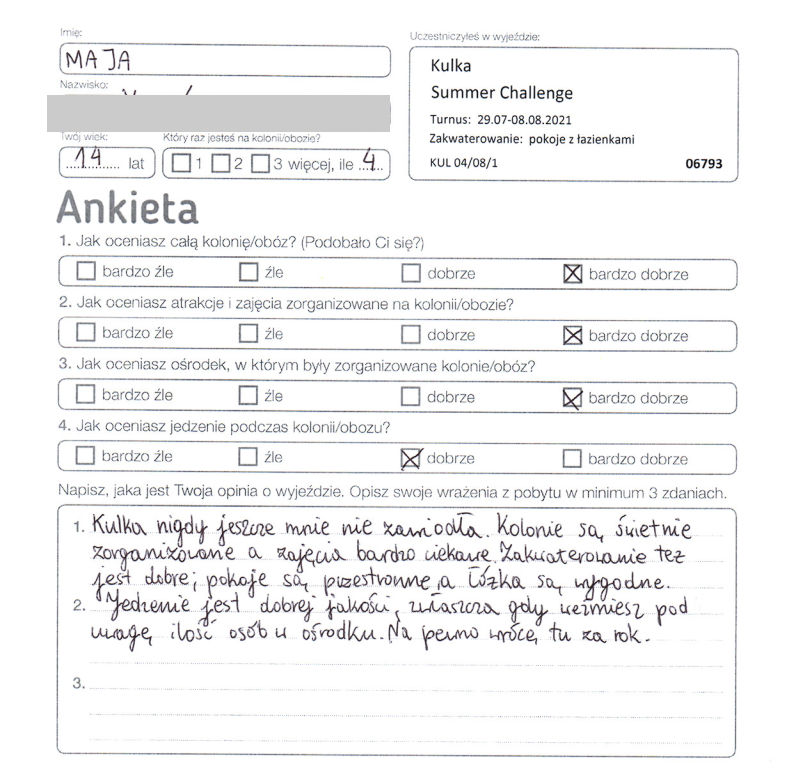 Imię:
MAJA
Nazwisko:
Twój wiek:
14 lat
Który raz jesteś na kolonii/obozie?
1 2 3 więcej, ile 4
Uczestniczyłeś w wyjeździe:
Kulka
Summer Challenge
Turnus: 29.07-08.08.2021
Zakwaterowanie: pokoje z łazienkami
KUL 04/08/1 06793
Ankieta
1. Jak oceniasz całą kolonię/obóz? (Podobało Ci się?)
bardzo źle źle dobrze bardzo dobrze
2. Jak oceniasz atrakcje i zajęcia zorganizowane na kolonii/obozie?
bardzo źle źle dobrze bardzo dobrze
3. Jak oceniasz ośrodek, w którym były zorganizowane kolonie/obóz?
bardzo źle źle dobrze bardzo dobrze
4. Jak oceniasz jedzenie podczas kolonii/obozu?
bardzo źle źle dobrze bardzo dobrze
Napisz, jaka jest Twoja opinia o wyjeździe. Opisz swoje wrażenia z pobytu w minimum 3 zdaniach.
1. Kulka nigdy jeszcze mnie nie zawiodła. Kolonie są świetnie
zorganizowane a zajęcia bardzo ciekawe. Zakwaterowanie też
jest dobre; pokoje są przestronne, a łóżka są wygodne.
2. Jedzenie jest dobrej jakości, zwłaszcza gdy weźmiesz pod
uwagę ilość osób w ośrodku. Na pewno wrócę tu za rok.
3.